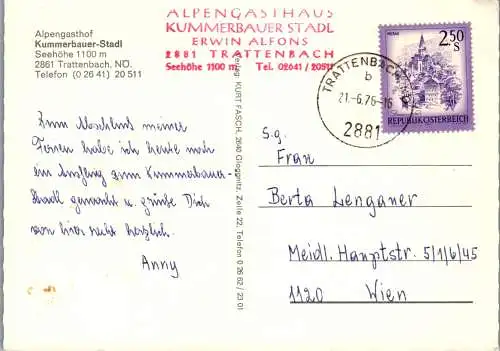 Alpengasthof
Kummerbauer-Stadl
Seehöhe 1100 m
2861 Trattenbach, NÖ.
Telefon (0 26 41) 20 511
ALPENGASTHAUS
KUMMERBAUER STADL
ERWIN ALFONS
2881 TRATTENBACH
Seehöhe 1100 m Tel. 02641/20511
TRATTENBACH
b
21.-6.76-16
2881
2.50
S
REPUBLIK ÖSTERREICH
Zum Abschluss meiner
Ferien habe ich heute noch
ein Ausflug zum Kummerbauer-
Stadl gemacht u. grüße Dich
von hier recht herzlich.
Anny
KURT FASCH, 2640 Gloggnitz, Zeile 22, Telefon 0 26 62 / 23 01
S.g.
Frau
Berta Lenganer
Meidl. Hauptstr. 5/1/6/45
1120 Wien